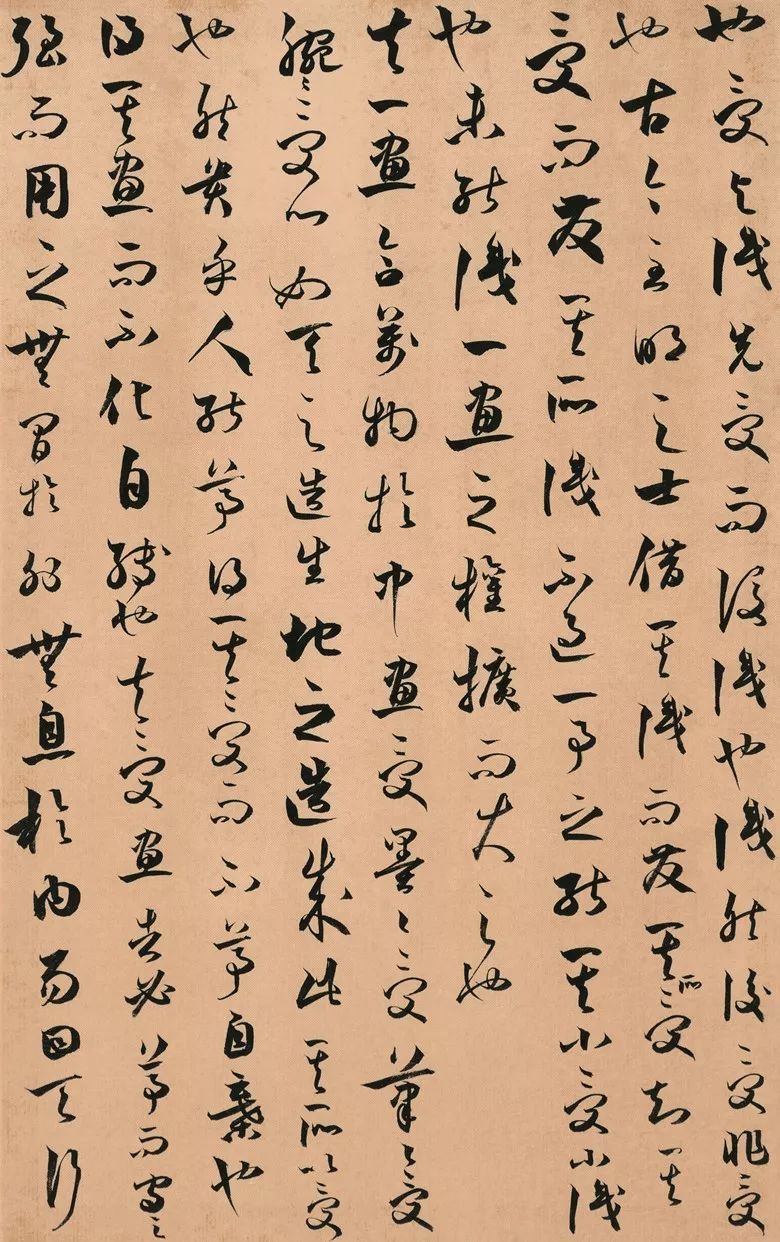 也受與識先受而後識也識然後受非受
也古今至明之士借其識而發其所受知其
受而發其所識不過一事之能其小受小識
也未能識一畫之權擴而大之也
夫一畫含萬物於中畫受墨墨受筆筆受
腕腕受心如天之造生地之造成此其所以受
也然貴乎人能尊得其受而不尊自棄也
得其畫而不化自縛也夫受畫者必尊而守之
強而用之無間於外無息於內易曰天行